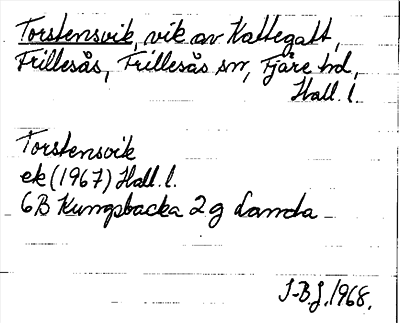 Torstensvik, vik av Kattegatt,
Frillesås, Frillesås sn, Fjäre hd,
Hall. l.
Torstensvik
ek (1967) Hall. l.
6B Kungsbacka 2 g Landa
J-B.J. 1968.